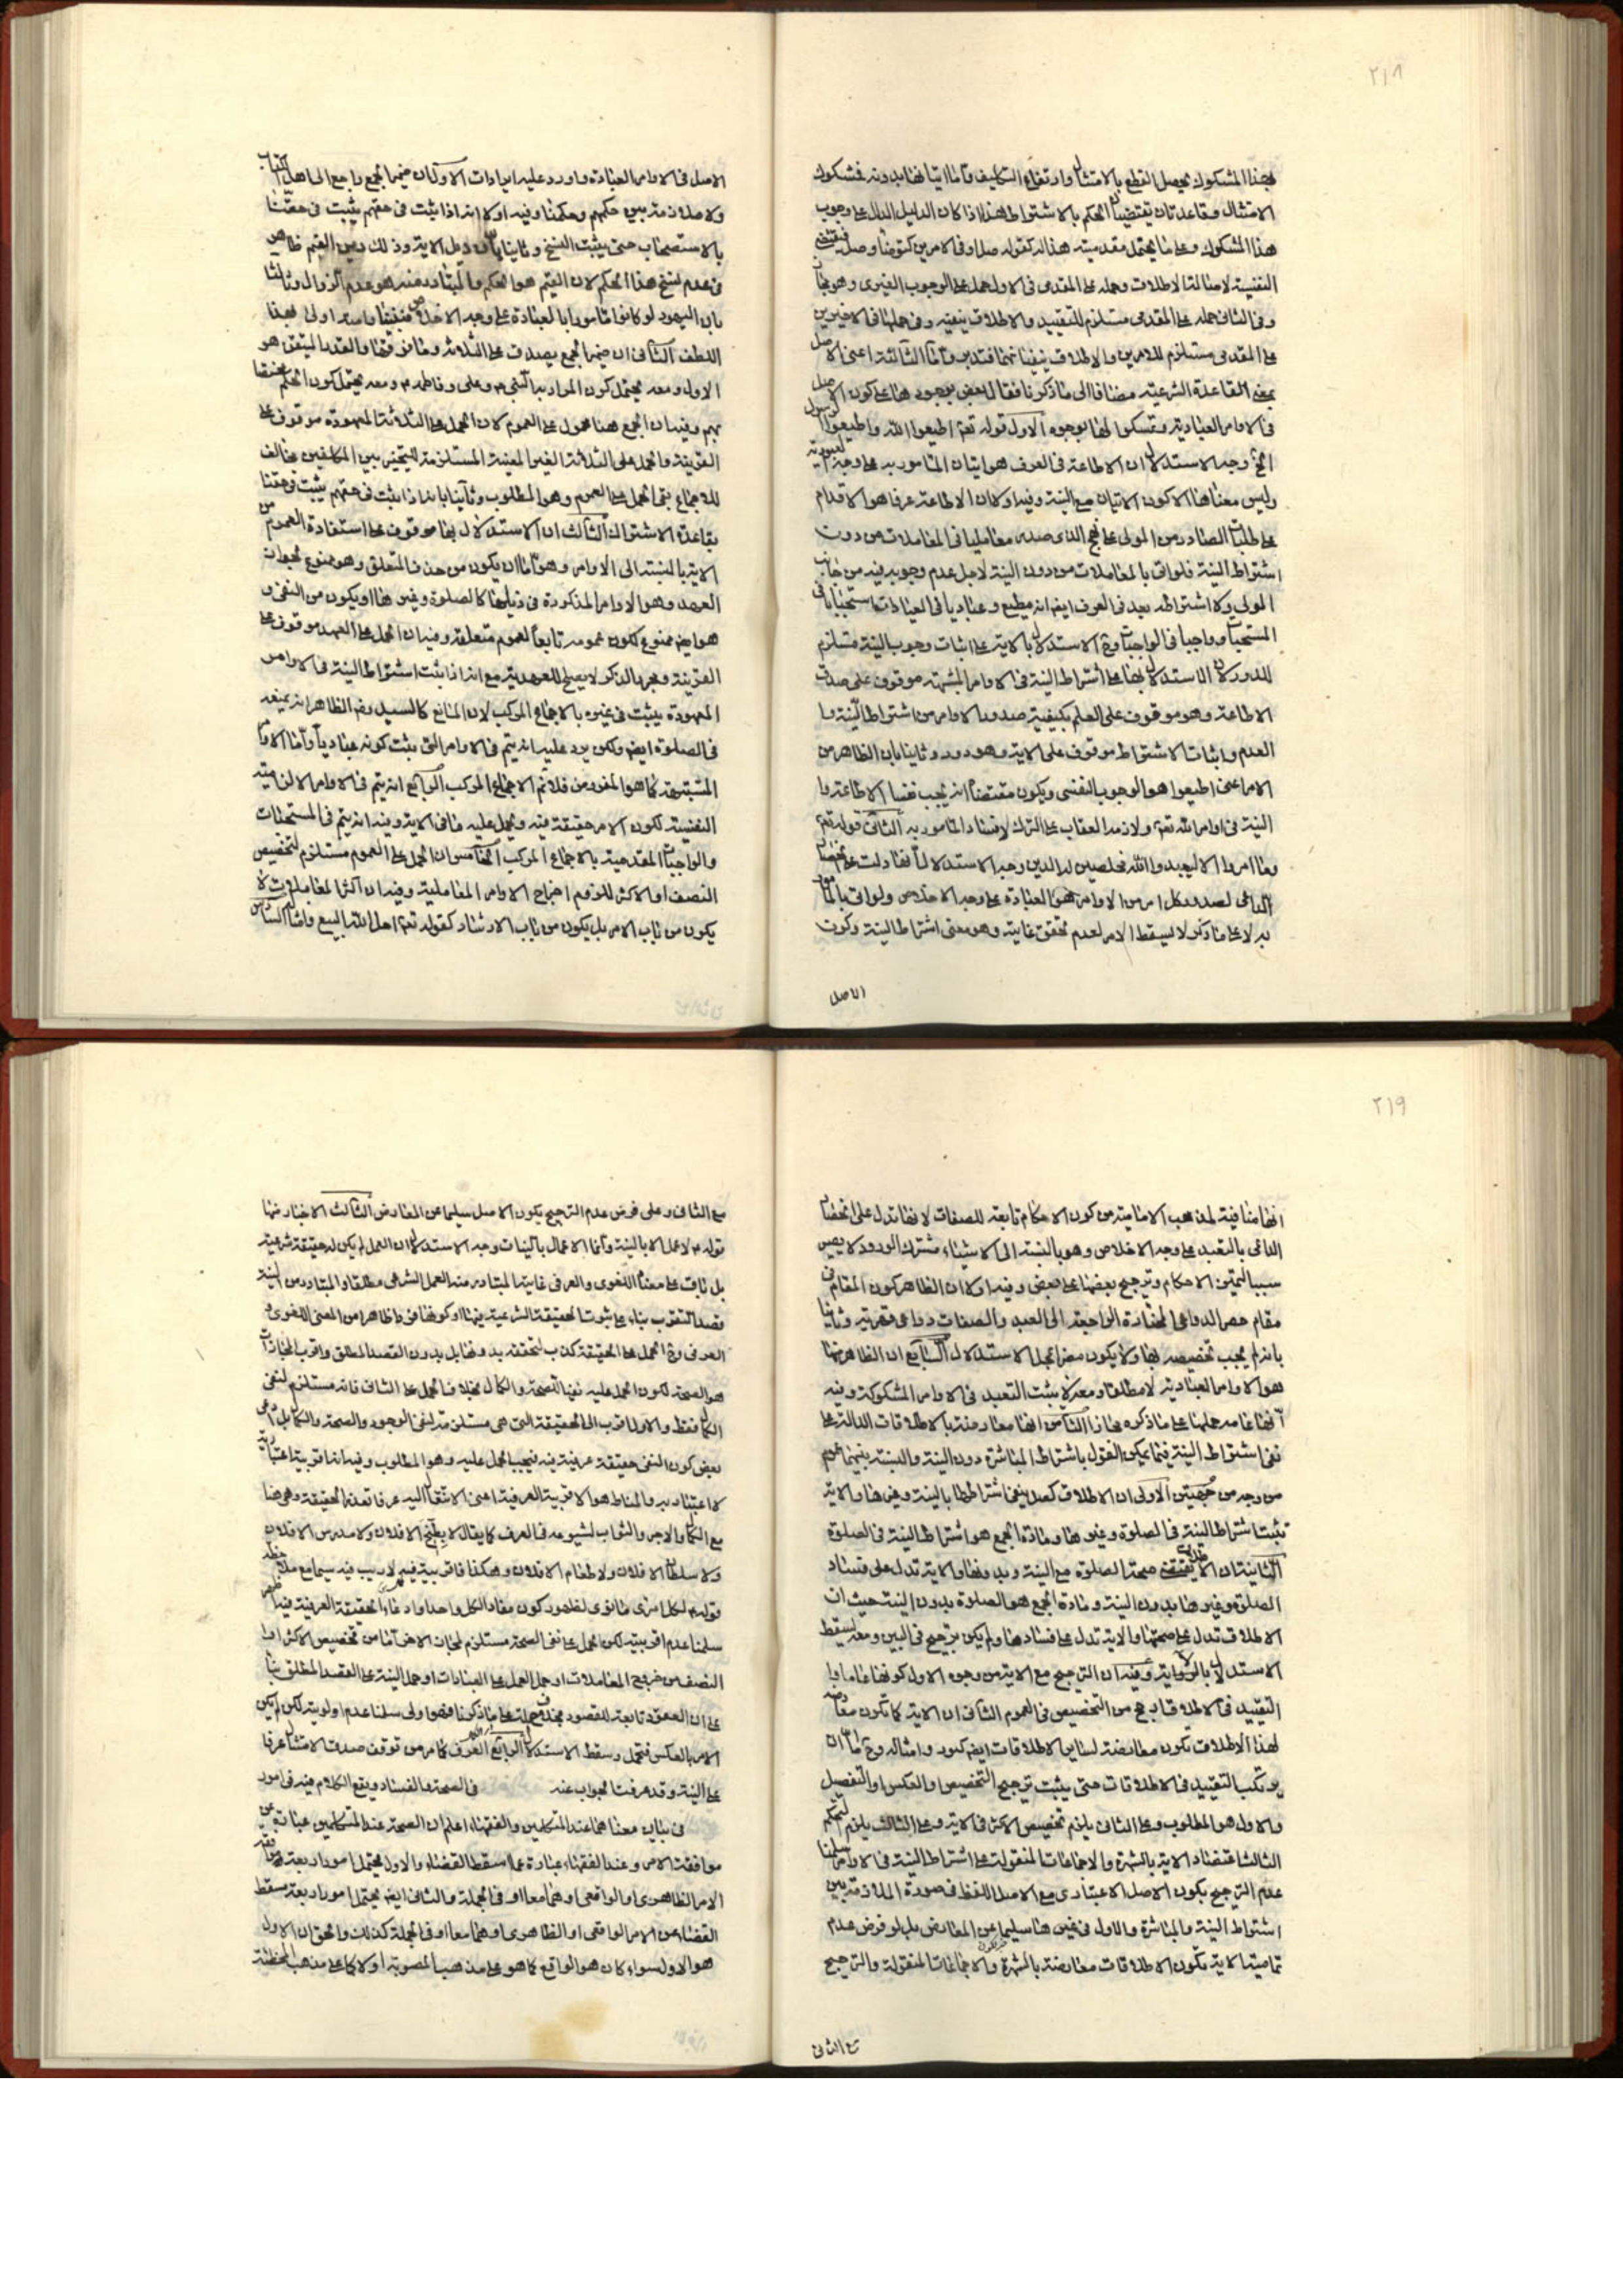 ٢١٨
بهذا المشكوك يحصل القطع بالامتثال وارتفاع التكليف واما اتيانها بدونه فشكوك
الامتثال وقاعدتان تقتضيان الحكم بالاشتراط هذا اذا كان الدليل الدال على وجوب
هذا المشكوك وعلى ما يحتمل مقدميته هذا له كقوله صل او في الامرين كتوضأ وصل
النفسية لاصالة الاطلاق وحمله على المقدمى فى الاول حمل على الوجوب الغيرى وهو مجاز
وفى الثانى حمله على المقدمى مستلزم للتقييد والاطلاق ينفيه وفى حملها فى الاخيرين
على المقدمى مستلزم للامرين والاطلاق ينفيانهما فتدبر واما الثالثة اعنى الاصل
بمعنى القاعدة الشرعية مضافا الى ما ذكرنا فقال بعض بوجود هنا على كون الاصل
فى الاوامر العبادية وتمسكوا لها بوجوه الاول قوله تعه اطيعوا الله واطيعوا الرسول
الخ وجه الاستدلال ان الاطاعة فى العرف هو اتيان المأمور به على وجه العبودية
وليس معناها الا كون الاتيان مع النية وفيه اولا ان الاطاعة عرفا هو الاقدام
على طلبات الصادر من المولى على نهج الذى صدر معامليا فى المعاملات من دون
اشتراط النية فلو اتى بالمعاملات من دون النية لاجل عدم وجوبه فيه من جانب
المولى ولا اشتراطه يعد فى العرف ايضا انه مطيع وعباديا فى العبادات استحبابا فى
المستحبات وواجبا فى الواجبات وح الاستدلال بالاية على اثبات وجوب النية مستلزم
للدور لان الاستدلال بها على اشتراط النية فى الاوامر المشتبهة موقوف على صدق
الاطاعة وهو موقوف على العلم بكيفية صدور الاوامر من اشتراط النية و
العدم واثبات الاشتراط موقوف على الاية وهو دور وثانيا بان الظاهر من
الامر اعنى اطيعوا هو الوجوب النفسى ويكون مقتضاه انه يجب نفسا الاطاعة و
النية فى اوامر الله تعه ولازمه العقاب على الترك لافساد المأمور به الثانى قوله تعه
وما امروا الا ليعبدوا الله مخلصين له الدين وجه الاستدلال انها دلت على انحصار
الداعى لصدور كل امر من الاوامر هو العبادة على وجه الاخلاص ولو اتى بالمأمور
به لا على ما ذكر لا يسقط الامر لعدم تحقق غايته وهو معنى اشتراط النية وكون
الاصل
الاصل فى الاوامر العبادة واورد عليه ايرادات الاول ان ضمير الجمع راجع الى اهل الكتاب
ولا ملازمة بين حكمهم وحكمنا وفيه اولا انه اذا ثبت فى حقهم يثبت فى حقنا
بالاستصحاب حتى يثبت النسخ وثانيا بان ذيل الاية وذلك دين القيم ظاهر
فى عدم نسخ هذا الحكم لان القيم هو المحكم والمتبادر منه هو عدم الزوال وثالثا
بان اليهود لو كانوا مأمورا بالعبادة على وجه الاخلاص فنبينا وامته اولى بهذا
اللطف الثانى ان ضمير الجمع يصدق على الثلاثة وما فوقها والقدر المتيقن هو
الاول ومعه يحتمل كون المراد به النبى ص وعلى وفاطمه ع ومعه يحتمل كون الحكم مختصا
بهم وفيه ان الجمع هنا محمول على العموم لان الحمل على الثلاثة المعهودة موقوف على
القرينة والحمل على الثلاثة الغير المعينة المستلزمة للتخير بين المكلفين مخالف
للاجماع بقى الحمل على العموم وهو المطلوب وثانيا بانه اذا ثبت فى حقهم يثبت فى حقنا
بقاعدة الاشتراك الثالث ان الاستدلال بها موقوف على استفادة العموم من
الاية بالنسبة الى الاوامر وهو اما ان يكون من حذف المتعلق وهو ممنوع لجواز
العهد وهو الاوامر المذكورة فى ذيلها كالصلوة وغيرها او يكون من النفى و
هو ايضا ممنوع لكون عمومه تابعا لعموم متعلقه وفيه ان الحمل على العهد موقوف على
القرينة ومجرد الذكر لا يصلح للعهدية مع انه اذا ثبت اشتراط النية فى الاوامر
المعهودة يثبت فى غيره بالاجماع المركب لان المانع كالسيد
فى الصلوة ايضا ولكن يرد عليه انه يتم فى الاوامر التى يثبت كونه عباديا واما الاوامر
المشتبهة كما هو المفروض فلا يتم الاجماع المركب الرابع انه يتم فى الاوامر الالزامية
النفسية لكون الامر حقيقة فيه ويحمل عليه ما فى الاية وفيه انه يتم فى المستحبات
والواجبات المقدمية بالاجماع المركب الخامس ان الحمل على العموم مستلزم لتخصيص
النصف او الاكثر للزوم اخراج الاوامر المعاملية وفيه ان اكثر المعاملات لا
يكون من باب الامر بل يكون من باب الارشاد كقوله تعه احل الله البيع وامثاله السادس
٢١٩
انها منافية لمذهب الامامية من كون الاحكام تابعة للصفات لانها تدل على انحصار
الداعى بالتعبد على وجه الاخلاص وهو بالنسبة الى الاشياء مشترك الورود لا يصير
سببا لتميز الاحكام وترجيح بعضها على بعض وفيه اولا ان الظاهر كون المقام فى
مقام حصر الدواعى المختارة الراجعة الى العبد والصفات دواعى قهرية وثانيا
بانه لم يجب تخصيصه بها ولا يكون مضرا لمحل الاستدلال السابع ان الظاهر منها
هو الاوامر العبادية لا مطلقا ومعه لا يثبت التعبد فى الاوامر المشكوكة وفيه
انها عامة حملها على ما ذكره مجاز الثامن انها معارضة بالاطلاقات الدالة على
نفى اشتراط النية فيما يمكن القول باشتراط المباشرة دون النية والنسبة بينهما عموم
من وجه من جهتين الاولى ان الاطلاق كصل ينفى اشتراطها بالنية وغيرها والاية
تثبت اشتراط النية فى الصلوة وغيرها ومادة الجمع هو اشتراط النية فى الصلوة
الثانية ان الاطلاق يقتضى صحة الصلوة مع النية وبدونها والاية تدل على فساد
الصلوة وغيرها بدون النية ومادة الجمع هو الصلوة بدون النية حيث ان
الاطلاق تدل على صحتها والاية تدل على فسادها ولم يكن ترجيح فى البين ومعه يسقط
الاستدلال بالاية وفيه ان الترجيح مع الاية من وجوه الاول كونها عاما و
التقييد فى الاطلاق ارجح من التخصيص فى العموم الثانى ان الاية كما تكون معارضة
لهذا الاطلاق تكون معارضة لساير الاطلاقات ايضا كبيع وامثاله وح اما ان
يرتكب التقييد فى الاطلاقات حتى يثبت ترجيح التخصيص او العكس او التفصيل
والاول هو المطلوب وعلى الثانى يلزم تخصيص الاكثر فى الاية وعلى الثالث يلزم التحكم
الثالث اعتضاد الاية بالشهرة والاجماعات المنقولة على اشتراط النية فى الاوامر سلمنا
عدم الترجيح يكون الاصل الاعتبارى مع الاصل اللفظ فى صورة الملازمة بين
اشتراط النية والمباشرة والاول فى غيرها سليما عن المعارض بل لو فرض عدم
تمامية الاية تكون الاطلاقات معارضة بالشهرة والاجماعات المنقولة والترجيح
مع الثانى
مع الثانى وعلى فرض عدم الترجيح يكون الاصل سليما عن المعارض الثالث الاخبار منها
قوله ع لا عمل الا بالنية وانما الاعمال بالنيات وجه الاستدلال ان العمل لم يكن له حقيقة شرعية
بل باق على معناه اللغوى والعرفى غايته المتبادر منه العمل الشرعى مطلقا والمتبادر من النية
قصد التقرب بناء على ثبوت الحقيقة الشرعية فيها او كونها فى واظاهرا من المعنى اللغوى و
العرفى وح الحمل على الحقيقة كذب لتحققه بدونها بل بدون القصد المطلق واقرب المجازات
هو الصحة لكون الحمل عليه نفيا للصحة والكمال بخلاف الحمل على الثانى فانه مستلزم لنفى
الكمال فقط والاول اقرب الى الحقيقة التى هى مستلزمة لنفى الوجود والصحة والكمال بل ادعى
بعض كون النفى حقيقة عرفية فيه فيجب الحمل عليه وهو المطلوب وفيه انها قريبة اعتبارية
لا اعتناد به والمناط هو الاقربية العرفية اعنى الانتقال اليه عرفا بعد الحقيقة وهى هنا
مع الكمال والاجر والثواب لشيوعه فى العرف كما يقال لا بطيخ الا فلان ولا مدرس الا فلان
ولا سلطان الا فلان ولا طعام الا فلان وهكذا فاقربيته فيه لا ريب فيه سيما مع ملاحظة
قوله ع لكل امرئ ما نوى لظهور كون مفاد الكل واحدا وادعاء الحقيقة العرفية فيه
سلمنا عدم اقربيته لكن الحمل على نفى الصحة مستلزم لمجاز الاخر اما من تخصيص الاكثر او
النصف من خروج المعاملات او حمل العمل على العبادات او حمل النية على القصد المطلق بناء
على ان العقود تابعة للقصود بخلاف حمله على ما ذكرنا فهو اولى سلمنا عدم اولويته لكن لم يكن
الامر بالعكس فتحمل وسقط الاستدلال الرابع العرف كما مر من توقف صدق الامتثال عرفا
على النية وقد عرفت الجواب عنه فى الصحة والفساد ويقع الكلام فيه فى امور
فى بيان معناهما عند المتكلمين والفقهاء اعلم ان الصحة عند المتكلمين عبارة عن
موافقة الامر وعند الفقهاء عبارة عما اسقط القضاء والاول يحتمل امورا اربعة موافقة
الامر الظاهرى او الواقعى او هما معا او فى الجملة والثانى ايضا يحتمل امورا اربعة مسقط
القضاء عن الامر الواقعى او الظاهرى او هما معا او فى الجملة كذلك والحق ان الاول
هو الاول سواء كان هو الواقع كما هو على مذهب المصوبة او لا كما على مذهب المخطئة